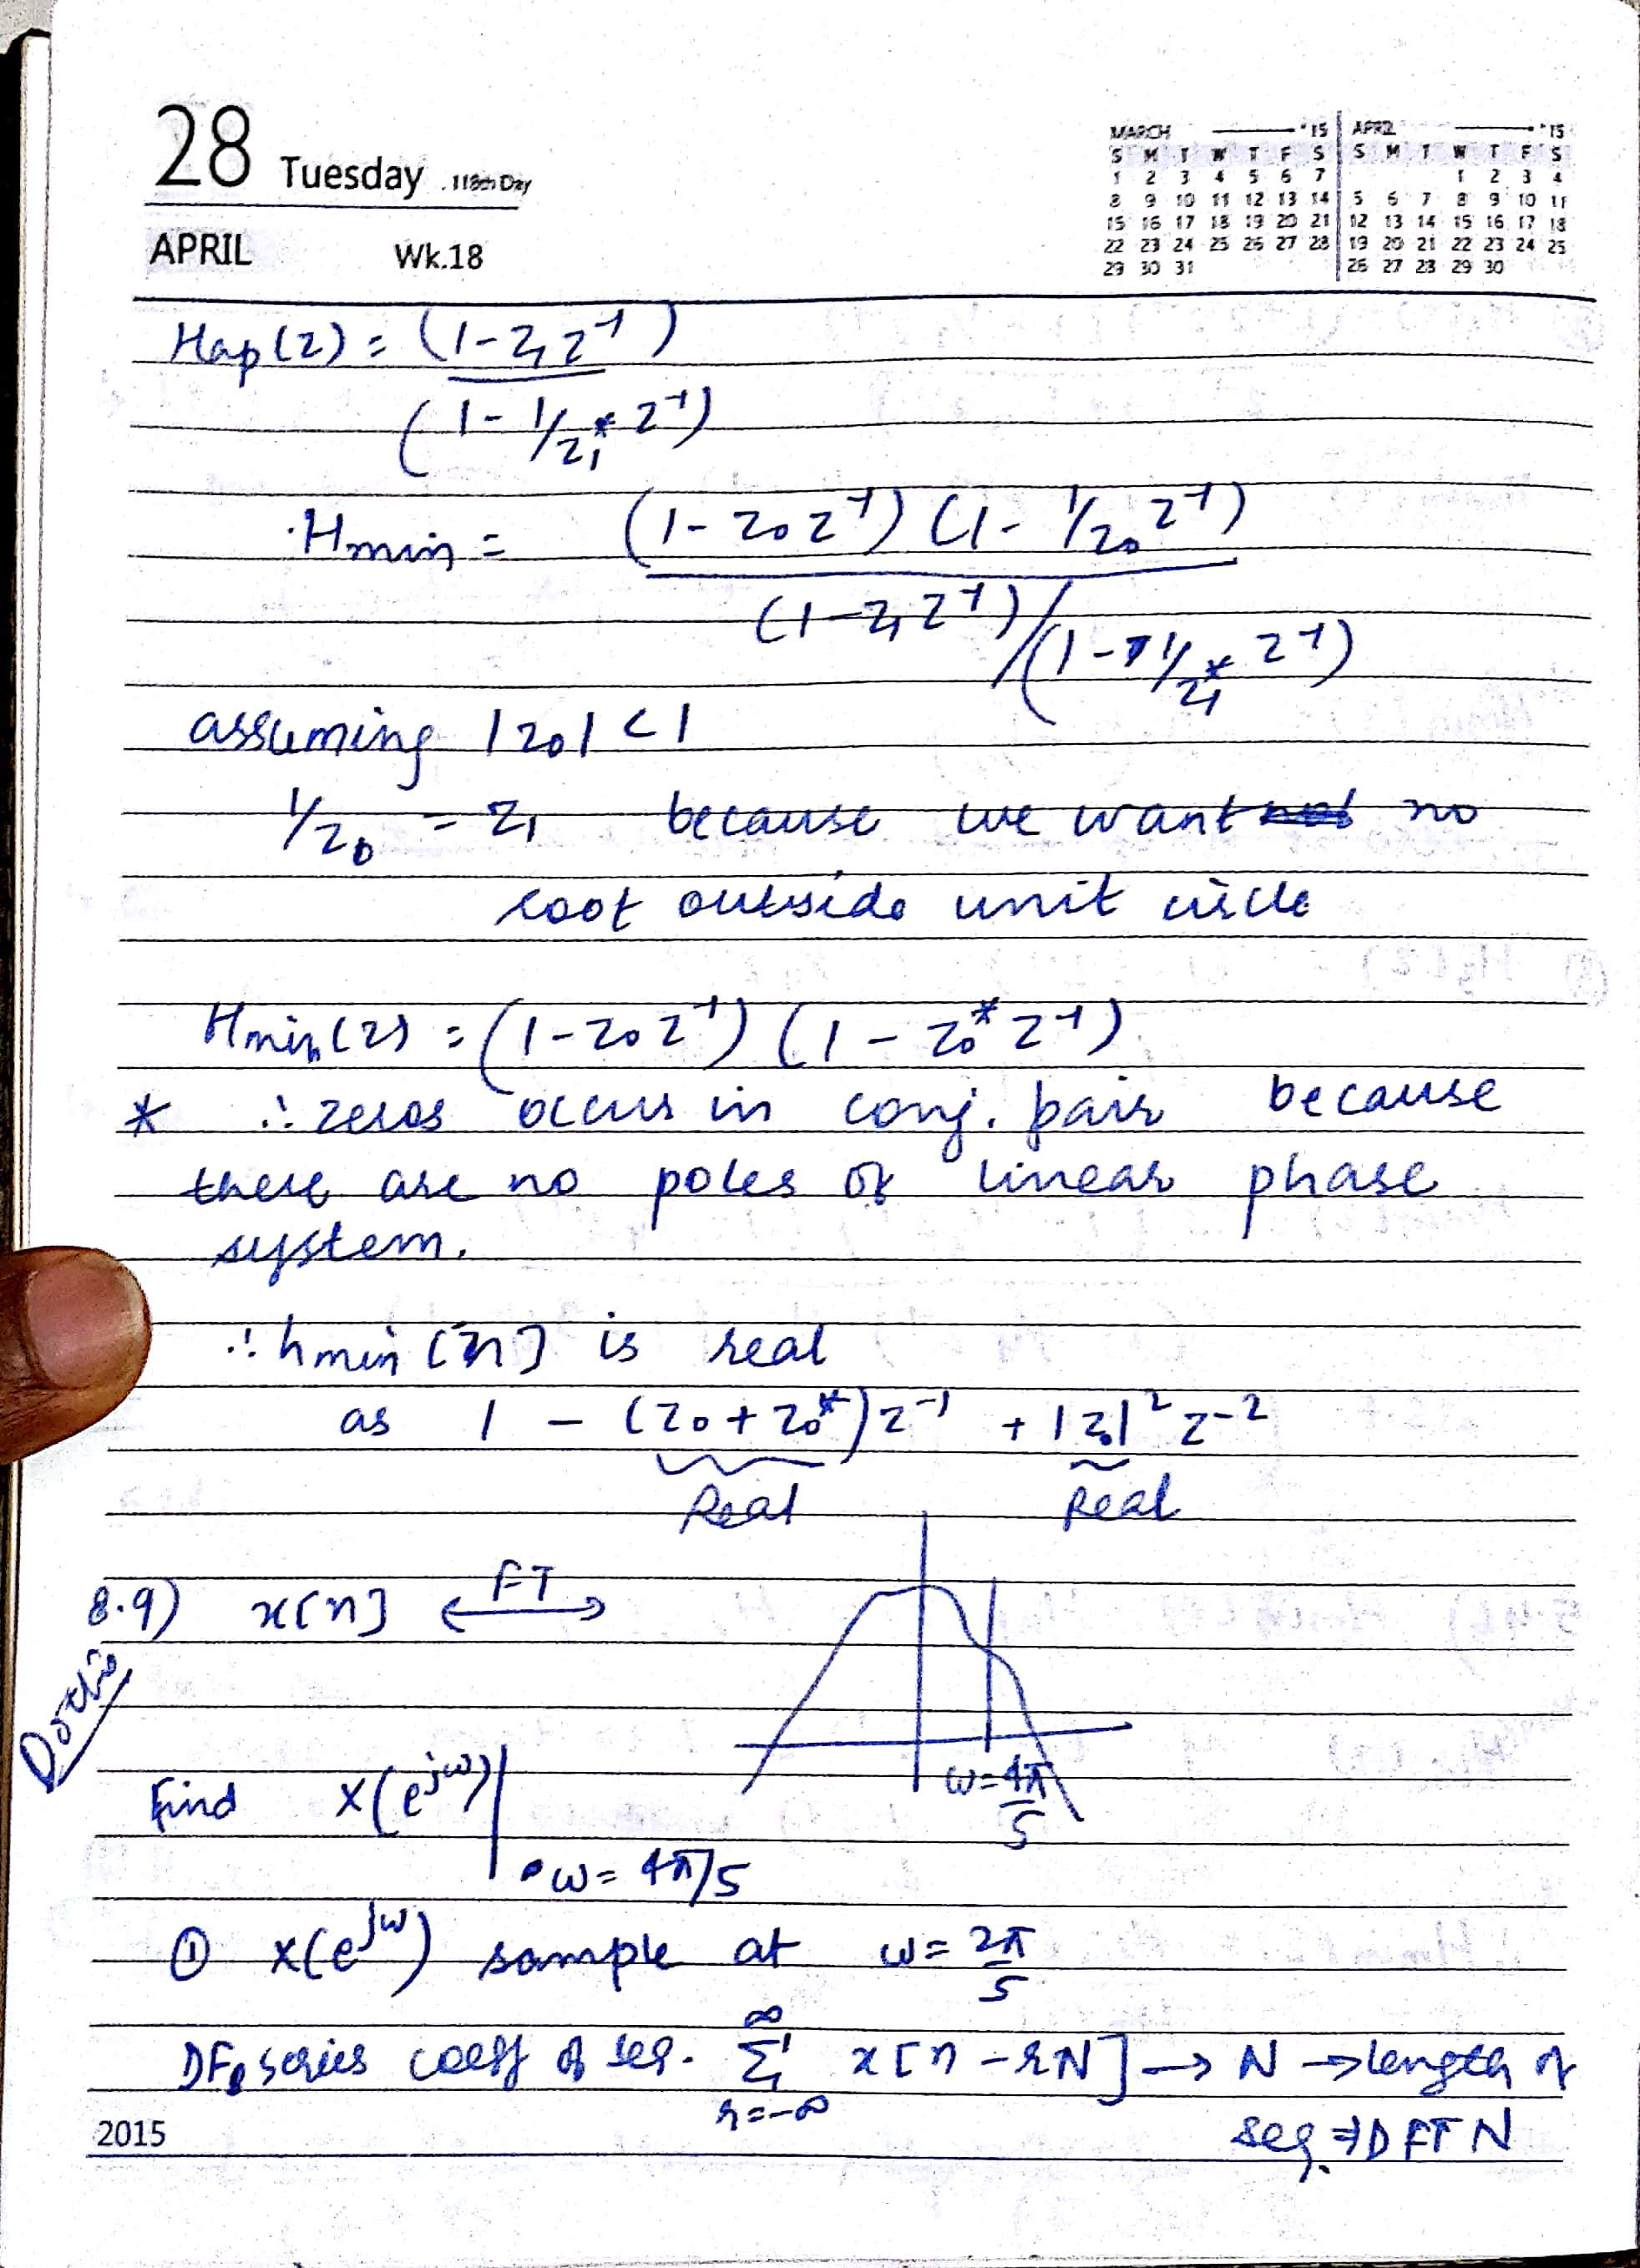 28 Tuesday 118th Day
APRIL Wk.18
MARCH '15
S M T W T F S
1 2 3 4 5 6 7
8 9 10 11 12 13 14
15 16 17 18 19 20 21
22 23 24 25 26 27 28
29 30 31
APRIL '15
S M T W T F S
1 2 3 4
5 6 7 8 9 10 11
12 13 14 15 16 17 18
19 20 21 22 23 24 25
26 27 28 29 30
Hap(z) = (1 - z₁z⁻¹)
(1 - 1/z₁* z⁻¹)
Hmin = (1 - z₀z⁻¹) (1 - 1/z₀ z⁻¹)
(1 - z₁z⁻¹) / (1 - 1/z₁* z⁻¹)
assuming |z₀| < 1
1/z₀ = z₁ because we want no
root outside unit circle
Hmin(z) = (1 - z₀z⁻¹) (1 - z₀* z⁻¹)
* ∴ zeros occurs in conj. pair because
there are no poles of linear phase
system.
∴ hmin[n] is real
as 1 - (z₀ + z₀*)z⁻¹ + |z₀|² z⁻²
Real Real
8.9) x[n] ⟷ FT
ω = 4π/5
Find X(e^jω)|
ω = 4π/5
① X(e^jω) sample at ω = 2π/5
DF series coeff of seq. ∑ r=-∞ ∞ x[n - rN] → N → length of
seq. ⇒ DFT N
2015